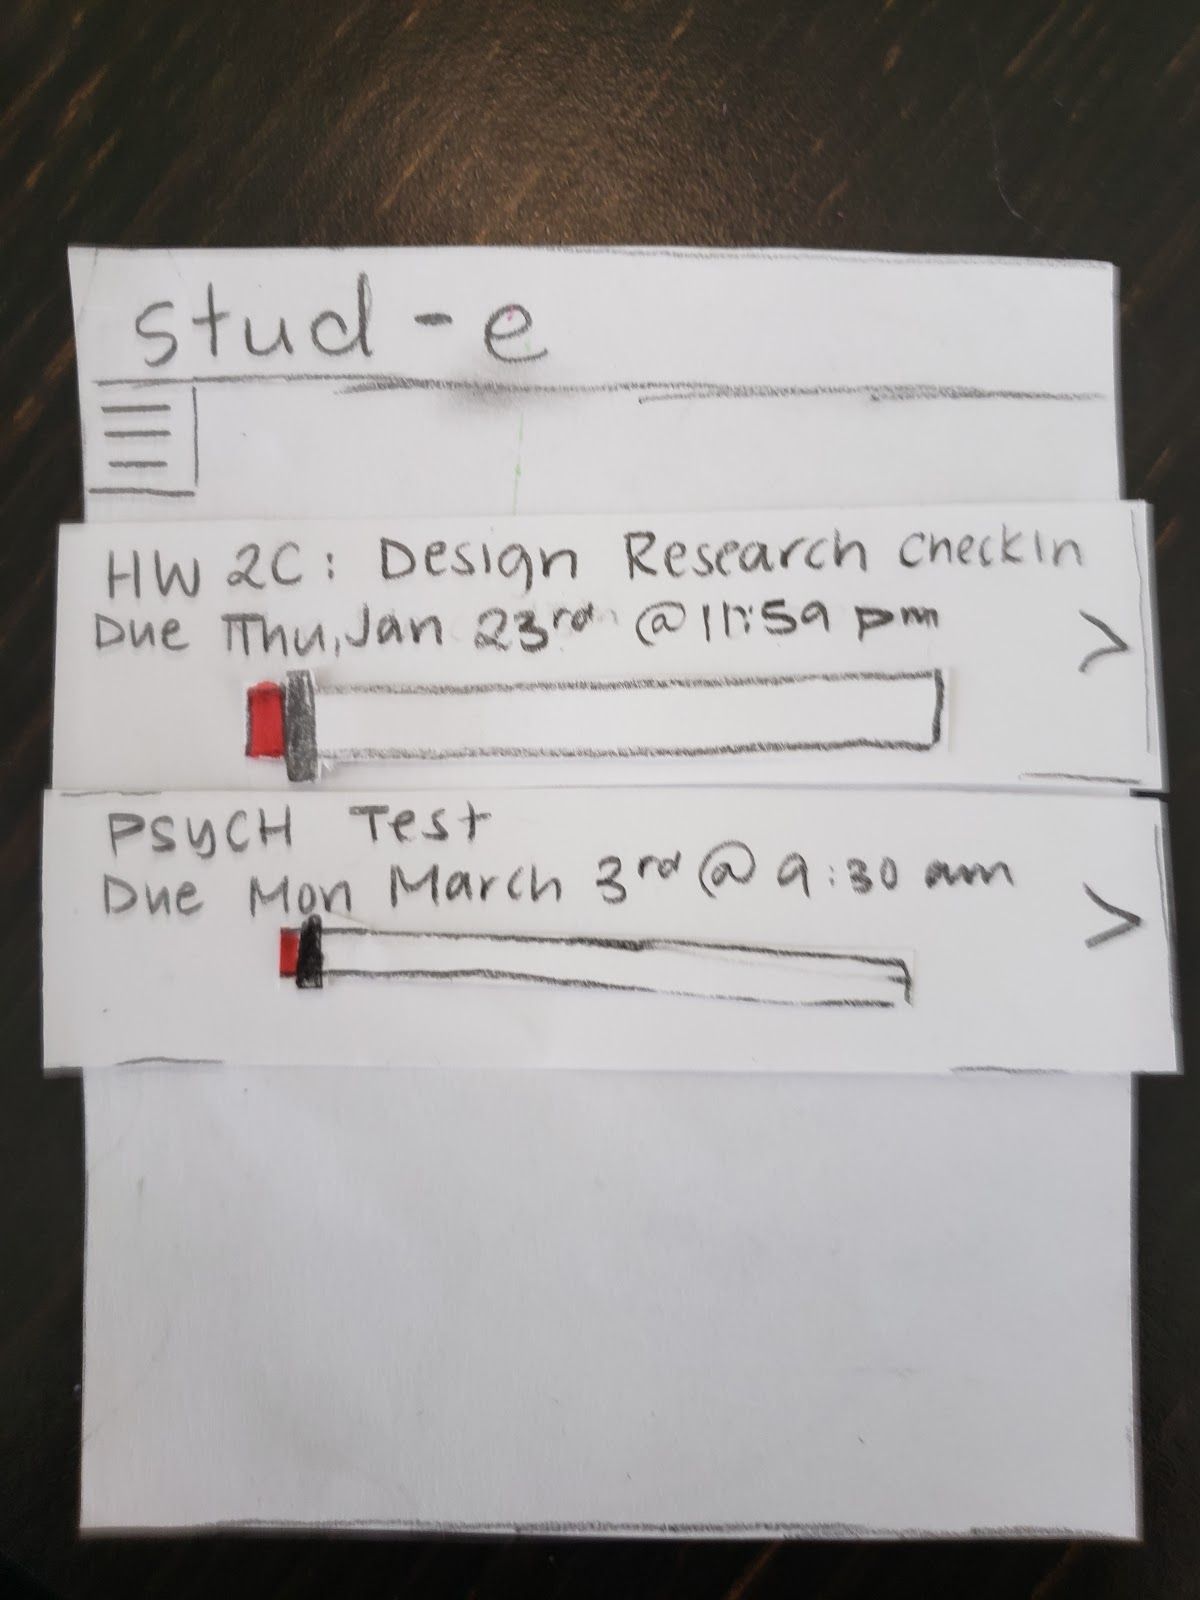 stud-e
HW 2C: Design Research CheckIn
Due Thu, Jan 23rd @ 11:59 pm
>
PSYCH Test
Due Mon March 3rd @ 9:30 am
>